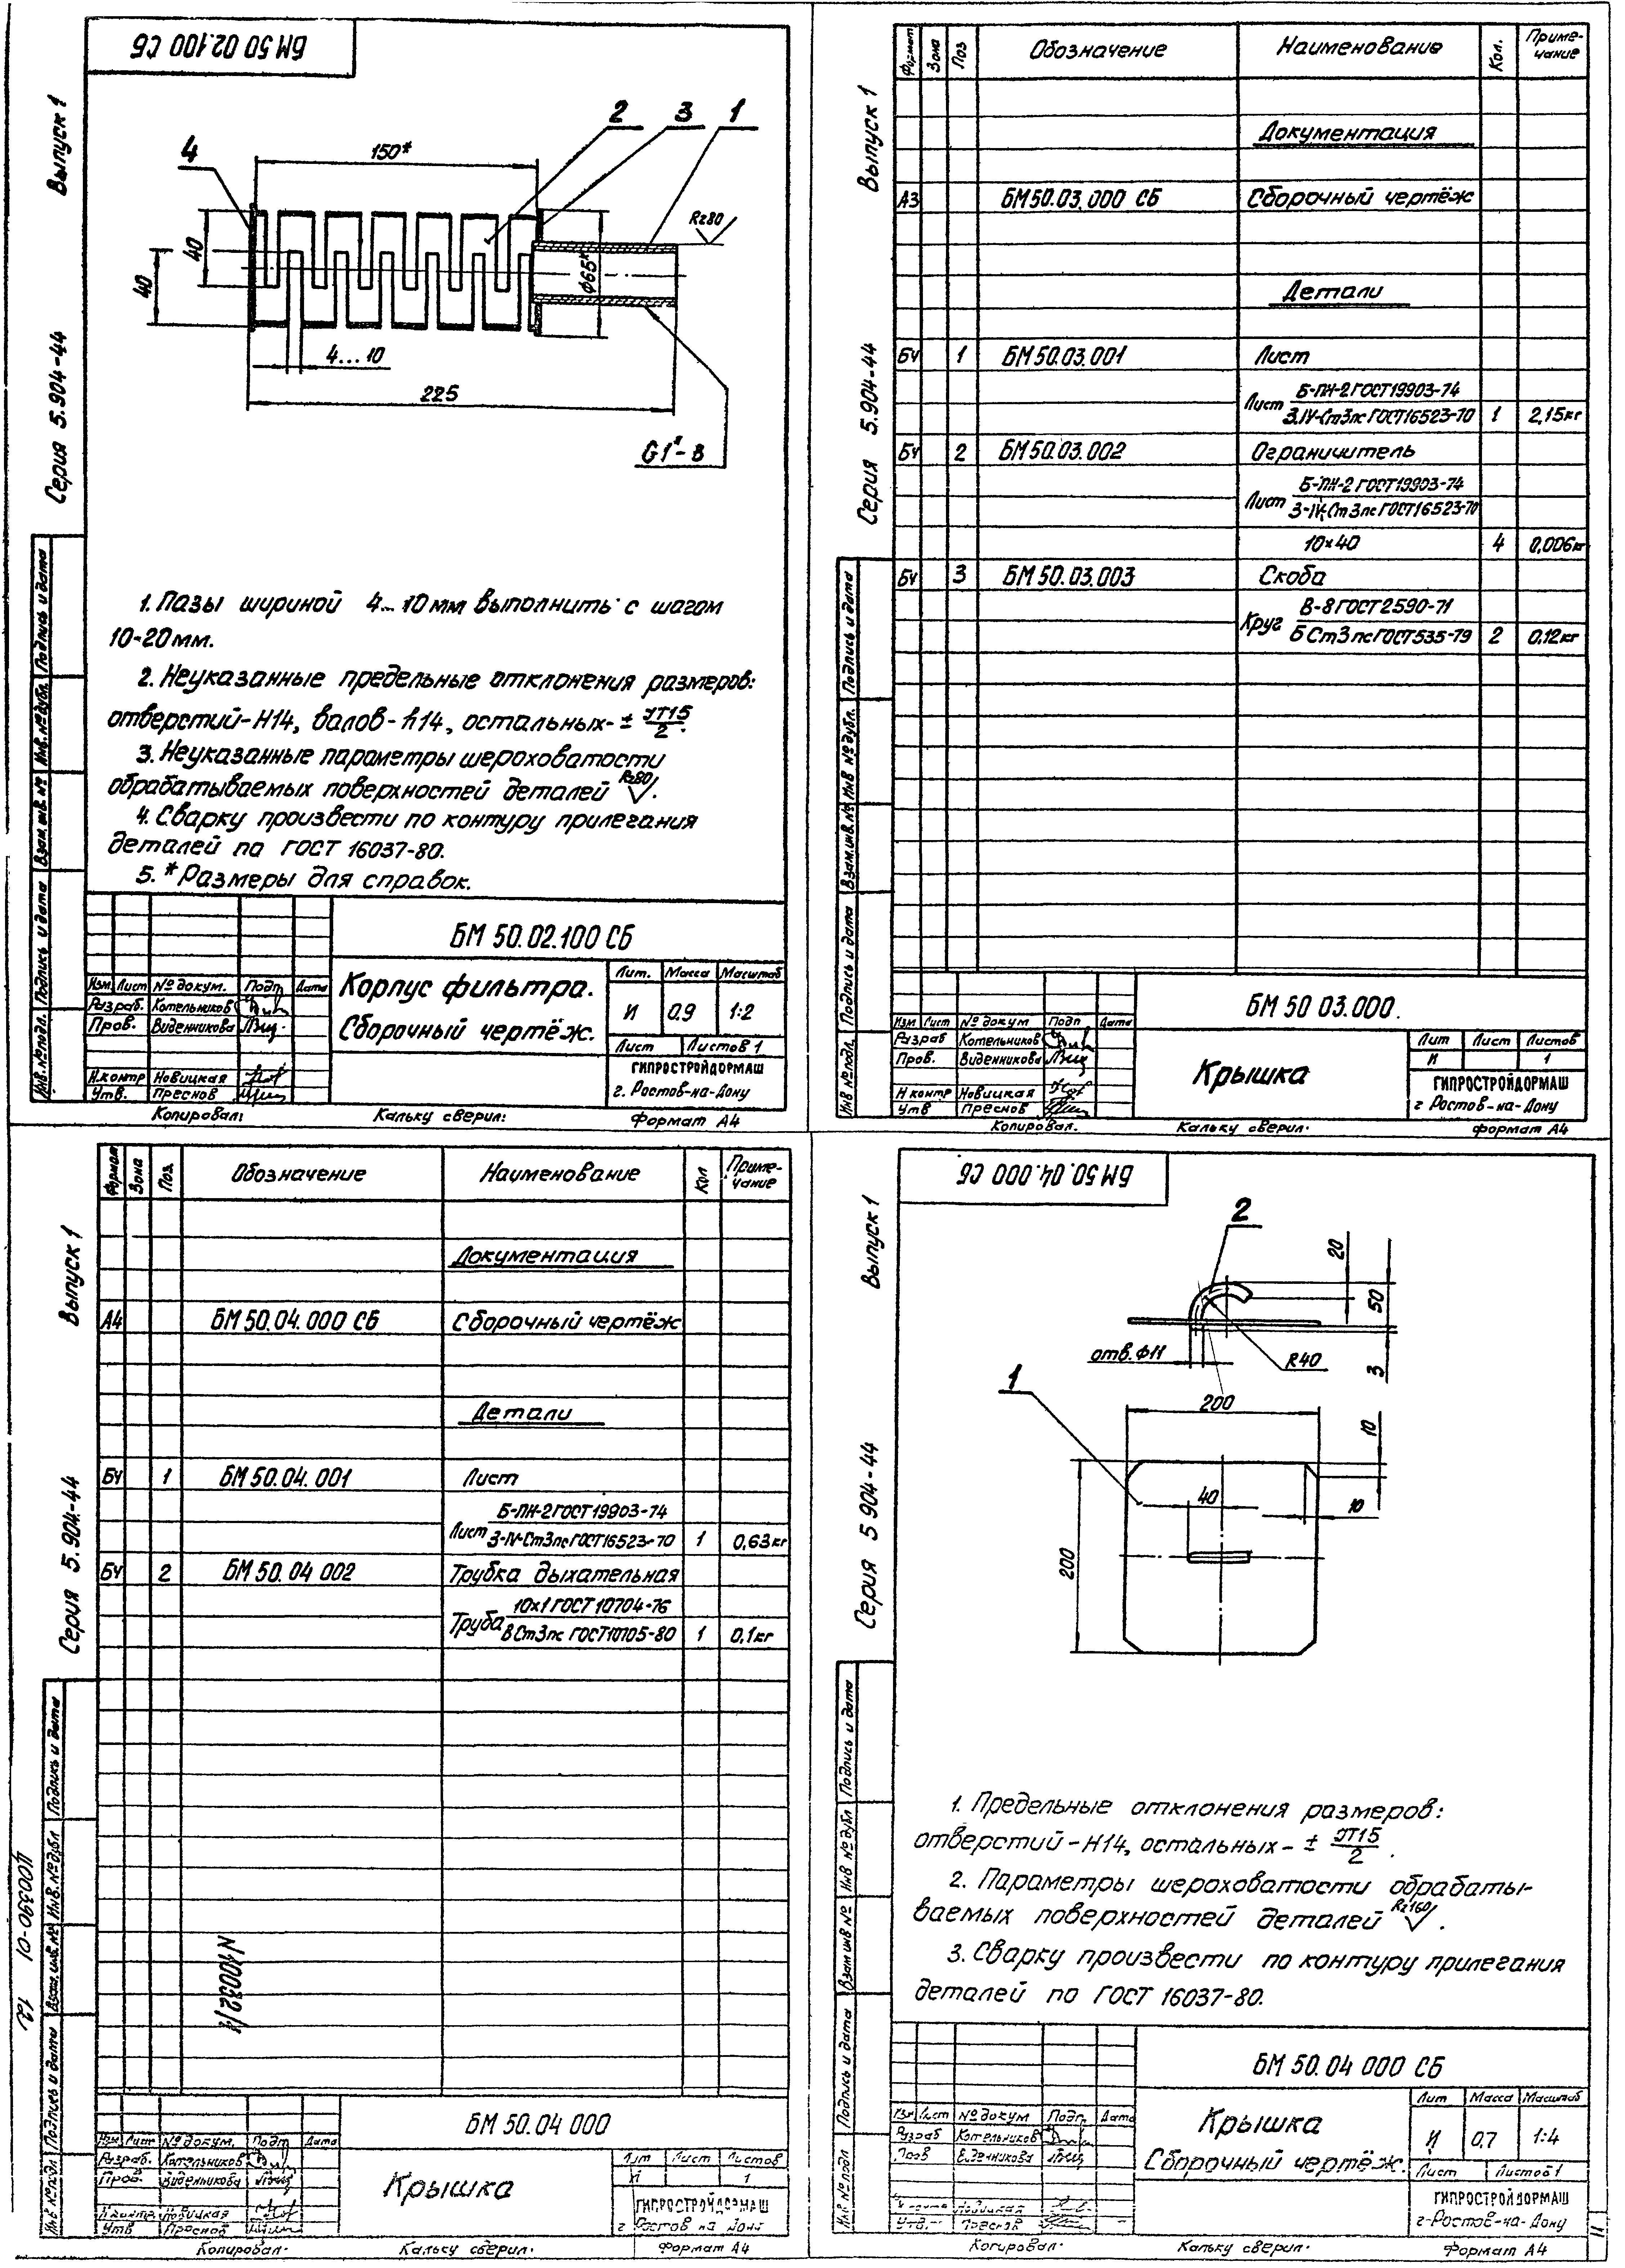 БМ 50 02.100 СБ
Выпуск 1
Серия 5.904-44
4
2
3
1
150*
Rz80
40
40
ф65*
4...10
225
G1"-B
1. Пазы шириной 4...10мм выполнить с шагом
10-20мм.
2. Неуказанные предельные отклонения размеров:
отверстий-H14, валов-h14, остальных- ± JT15/2.
3. Неуказанные параметры шероховатости
обрабатываемых поверхностей деталей Rz80.
4. Сварку произвести по контуру прилегания
деталей по ГОСТ 16037-80.
5. * Размеры для справок.
Инв.№подл. Подпись и дата Взам.инв.№ Инв.№дубл. Подпись и дата
БМ 50.02.100 СБ
Корпус фильтра.
Сборочный чертёж.
Лит. Масса Масштаб
И 0.9 1:2
Лист Листов 1
ГИПРОСТРОЙДОРМАШ
г. Ростов-на-Дону
Изм. Лист № докум. Подп Дата
Разраб. Котельников
Пров. Виденникова
Н.контр Новицкая
Утв. Преснов
Копировал: Кальку сверил: Формат А4
Выпуск 1
Серия 5.904-44
Формат Зона Поз Обозначение Наименование Кол. Приме-
чание
Документация
А3 БМ50.03.000 СБ Сборочный чертёж
Детали
Бч 1 БМ50.03.001 Лист
Б-ПН-2 ГОСТ19903-74
Лист 3.IV-Ст3пс ГОСТ16523-70 1 2,15кг
Бч 2 БМ50.03.002 Ограничитель
Б-ПН-2 ГОСТ19903-74
Лист 3-IV-Ст3пс ГОСТ16523-70
10×40 4 0,006кг
Бч 3 БМ50.03.003 Скоба
В-8 ГОСТ2590-71
Круг БСт3пс ГОСТ535-79 2 0,12кг
Инв №подл. Подпись и дата Взам.инв.№ Инв №дубл. Подпись и дата
БМ 50 03.000.
Изм Лист № докум Подп Дата
Разраб Котельников
Пров. Виденникова
Н контр Новицкая
Утв Преснов
Крышка
Лит Лист Листов
И 1
ГИПРОСТРОЙДОРМАШ
г Ростов-на-Дону
Копировал. Кальку сверил. Формат А4
Выпуск 1
Серия 5.904-44
Формат Зона Поз. Обозначение Наименование Кол Приме-
чание
Документация
А4 БМ50.04.000 СБ Сборочный чертёж
Детали
Бч 1 БМ50.04.001 Лист
Б-ПН-2 ГОСТ19903-74
Лист 3-IV-Ст3пс ГОСТ16523-70 1 0,63кг
Бч 2 БМ50.04 002 Трубка дыхательная
10х1 ГОСТ10704-76
Труба ВСт3пс ГОСТ10705-80 1 0,1кг
Инв №подл Подпись и дата Взам.инв.№ Инв.№дубл Подпись и дата
Ц00390-01 12
БМ 50.04 000
Изм Лист № докум. Подп. Дата
Разраб. Котельников
Пров. Виденникова
Н контр Новицкая
Утв Преснов
Крышка
Лит Лист Листов
И 1
ГИПРОСТРОЙДОРМАШ
г Ростов на Дону
Копировал. Кальку сверил. Формат А4
БМ 50.04.000 СБ
Выпуск 1
Серия 5 904-44
2
20
50
3
отв.ф11
R40
1
200
10
10
40
200
1. Предельные отклонения размеров:
отверстий-H14, остальных- ± JT15/2.
2. Параметры шероховатости обрабаты-
ваемых поверхностей деталей Rz160.
3. Сварку произвести по контуру прилегания
деталей по ГОСТ 16037-80.
Инв №подл Подпись и дата Взам инв № Инв №дубл Подпись и дата
БМ 50.04 000 СБ
Изм Лист № докум Подп. Дата
Разраб Котельников
Пров Виденникова
Н контр Новицкая
Утв. Преснов
Крышка
Сборочный чертёж.
Лит Масса Масштаб
И 0.7 1:4
Лист Листов 1
ГИПРОСТРОЙДОРМАШ
г-Ростов-на-Дону
Копировал. Кальку сверил. Формат А4
11